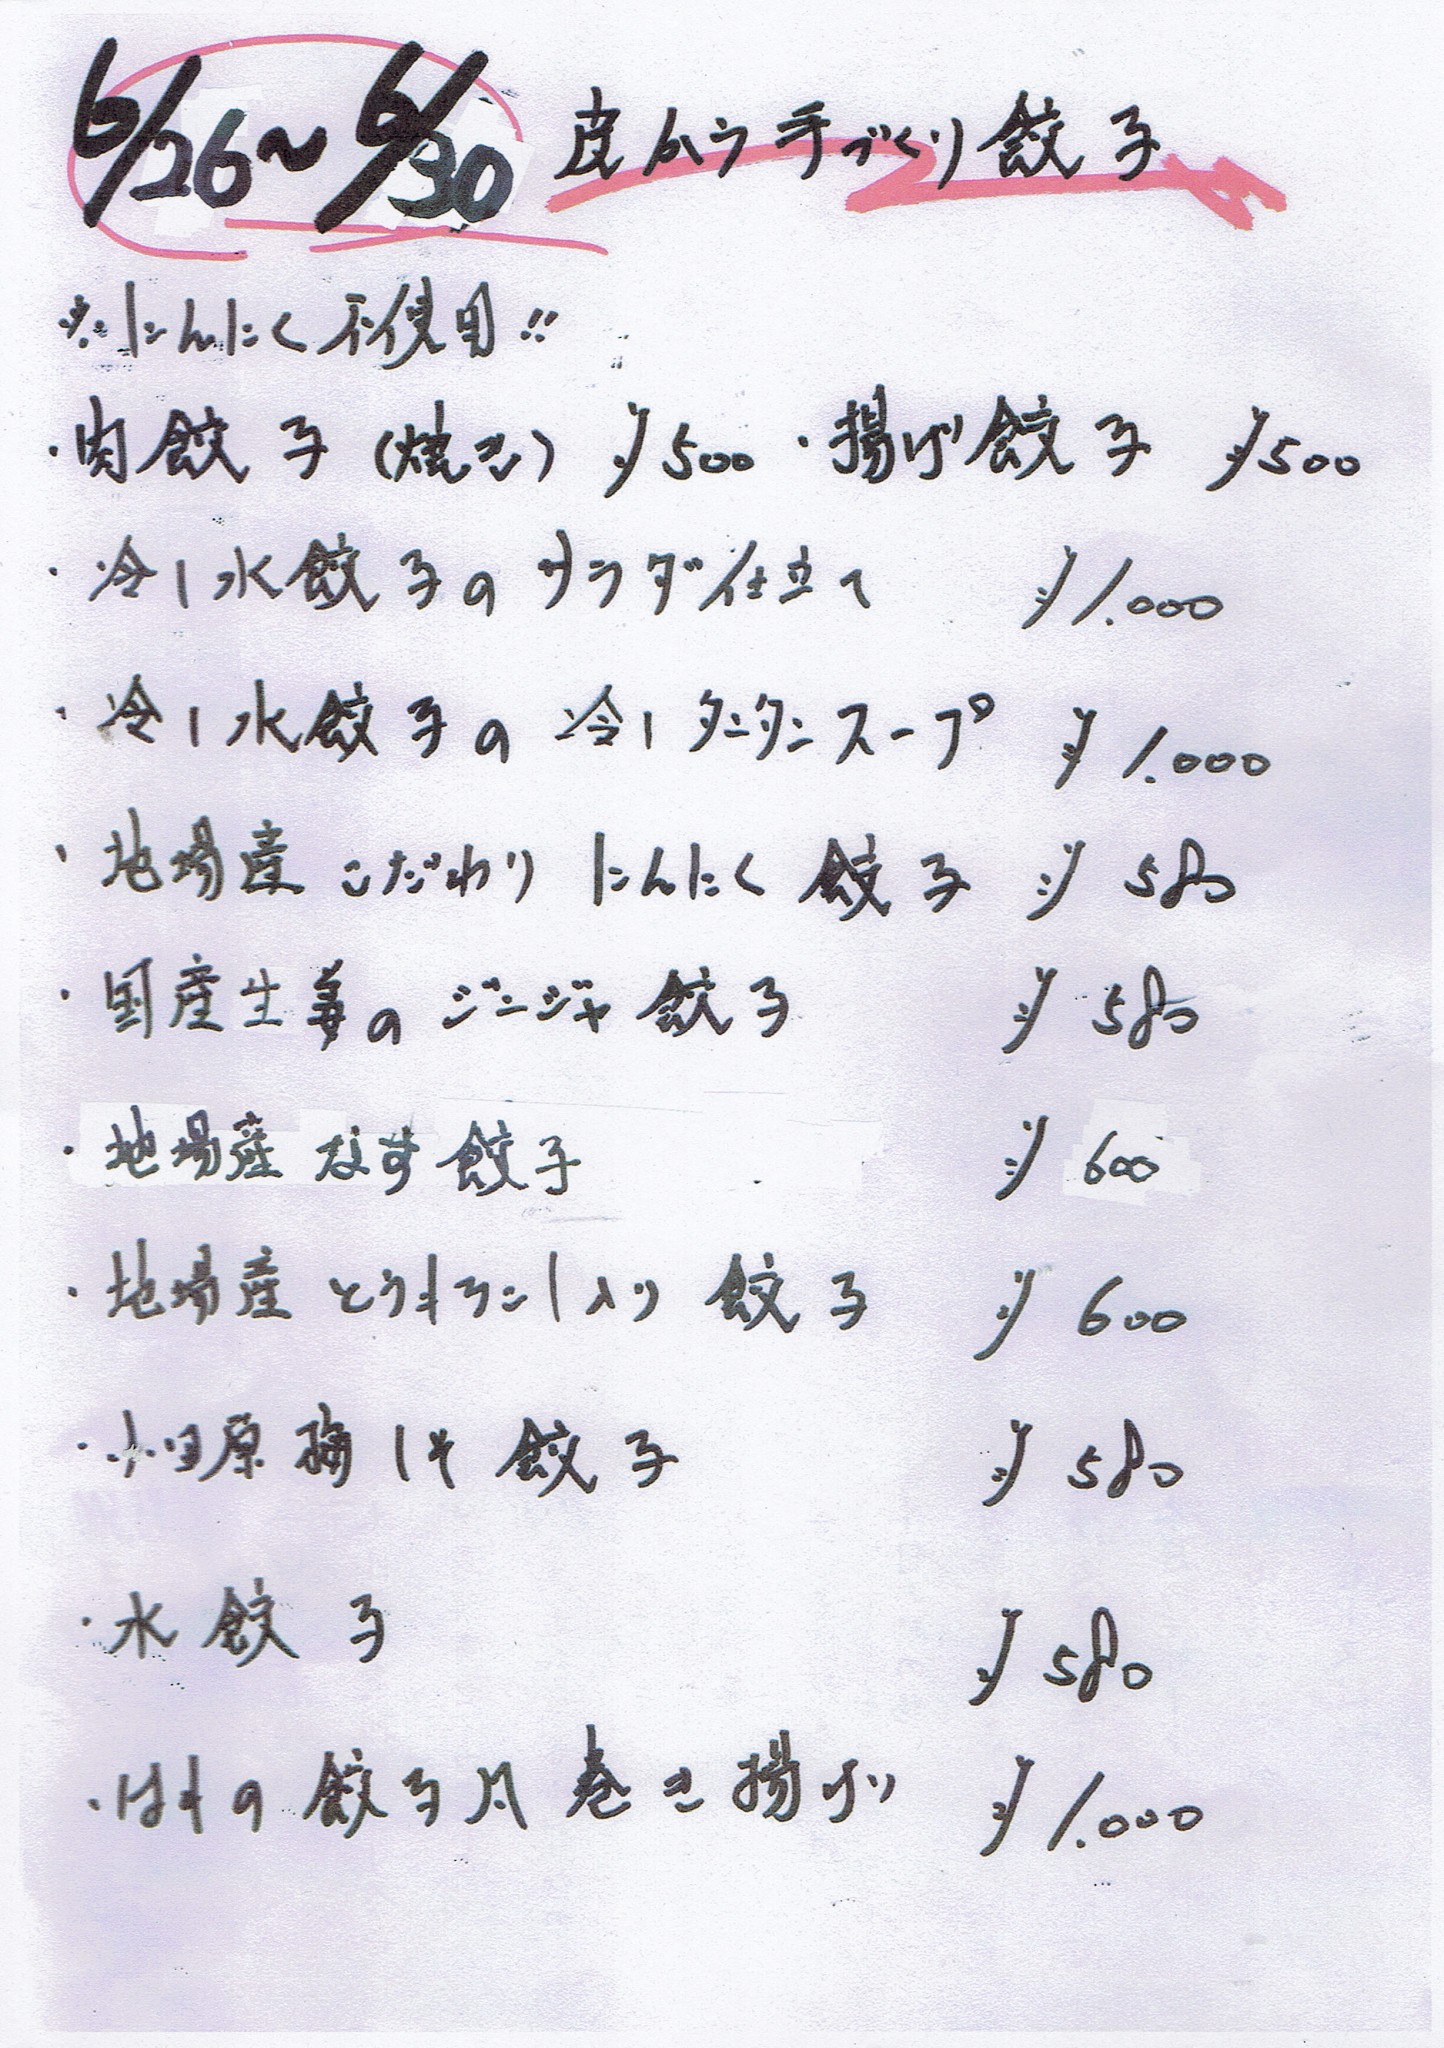 6/26〜6/30 皮から手づくり餃子
※にんにく不使用!!
・肉餃子(焼き) ¥500 ・揚げ餃子 ¥500
・冷し水餃子のサラダ仕立て ¥1.000
・冷し水餃子の冷しタンタンスープ ¥1.000
・地場産こだわりにんにく餃子 ¥580
・国産生姜のジンジャー餃子 ¥580
・地場産なす餃子 ¥600
・地場産とうもろこし入り餃子 ¥600
・小田原梅しそ餃子 ¥580
・水餃子 ¥580
・はもの餃子 巻き揚げ ¥1.000